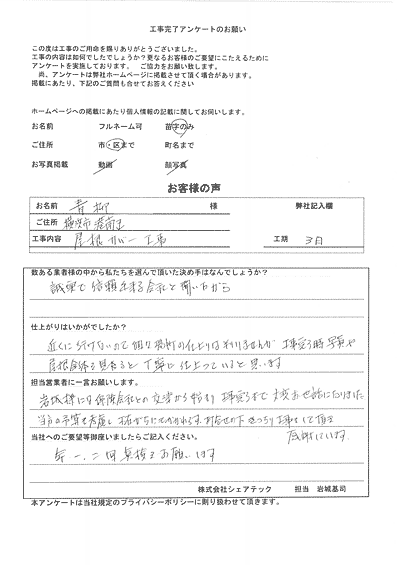 工事完了アンケートのお願い
この度は工事のご用命を賜りありがとうございました。
工事の内容は如何でしたでしょうか？更なるお客様のご要望にこたえるために
アンケートを実施しております。 ご協力をお願い致します。
尚、アンケートは弊社ホームページに掲載させて頂く場合があります。
掲載にあたり、下記のご質問も合せてお答えください
ホームページへの掲載にあたり個人情報の記載に関してお伺いします。
お名前 フルネーム可 苗字のみ
ご住所 市・区まで 町名まで
お写真掲載 動画 顔写真
お客様の声
お名前 青柳 様 弊社記入欄
ご住所 横浜市港南区
工事内容 屋根カバー工事 工期 3日
数ある業者様の中から私たちを選んで頂いた決め手はなんでしょうか？
誠実で信頼出来る会社と聞いたから
仕上がりはいかがでしたか？
近くに行けないので細かな場所の仕上りはわかりませんが 工事完了時写真や
屋根全体を見ると丁寧に仕上っていると思います
担当営業者に一言お願いします。
岩城様には保険会社との交渉から始まり 工事完了まで大変お世話になりました
感謝しています
当社へのご要望等御座いましたらご記入ください。
年一、二回点検をお願いします
株式会社シェアテック 担当 岩城基司
本アンケートは当社規定のプライバシーポリシーに則り扱わせて頂きます。